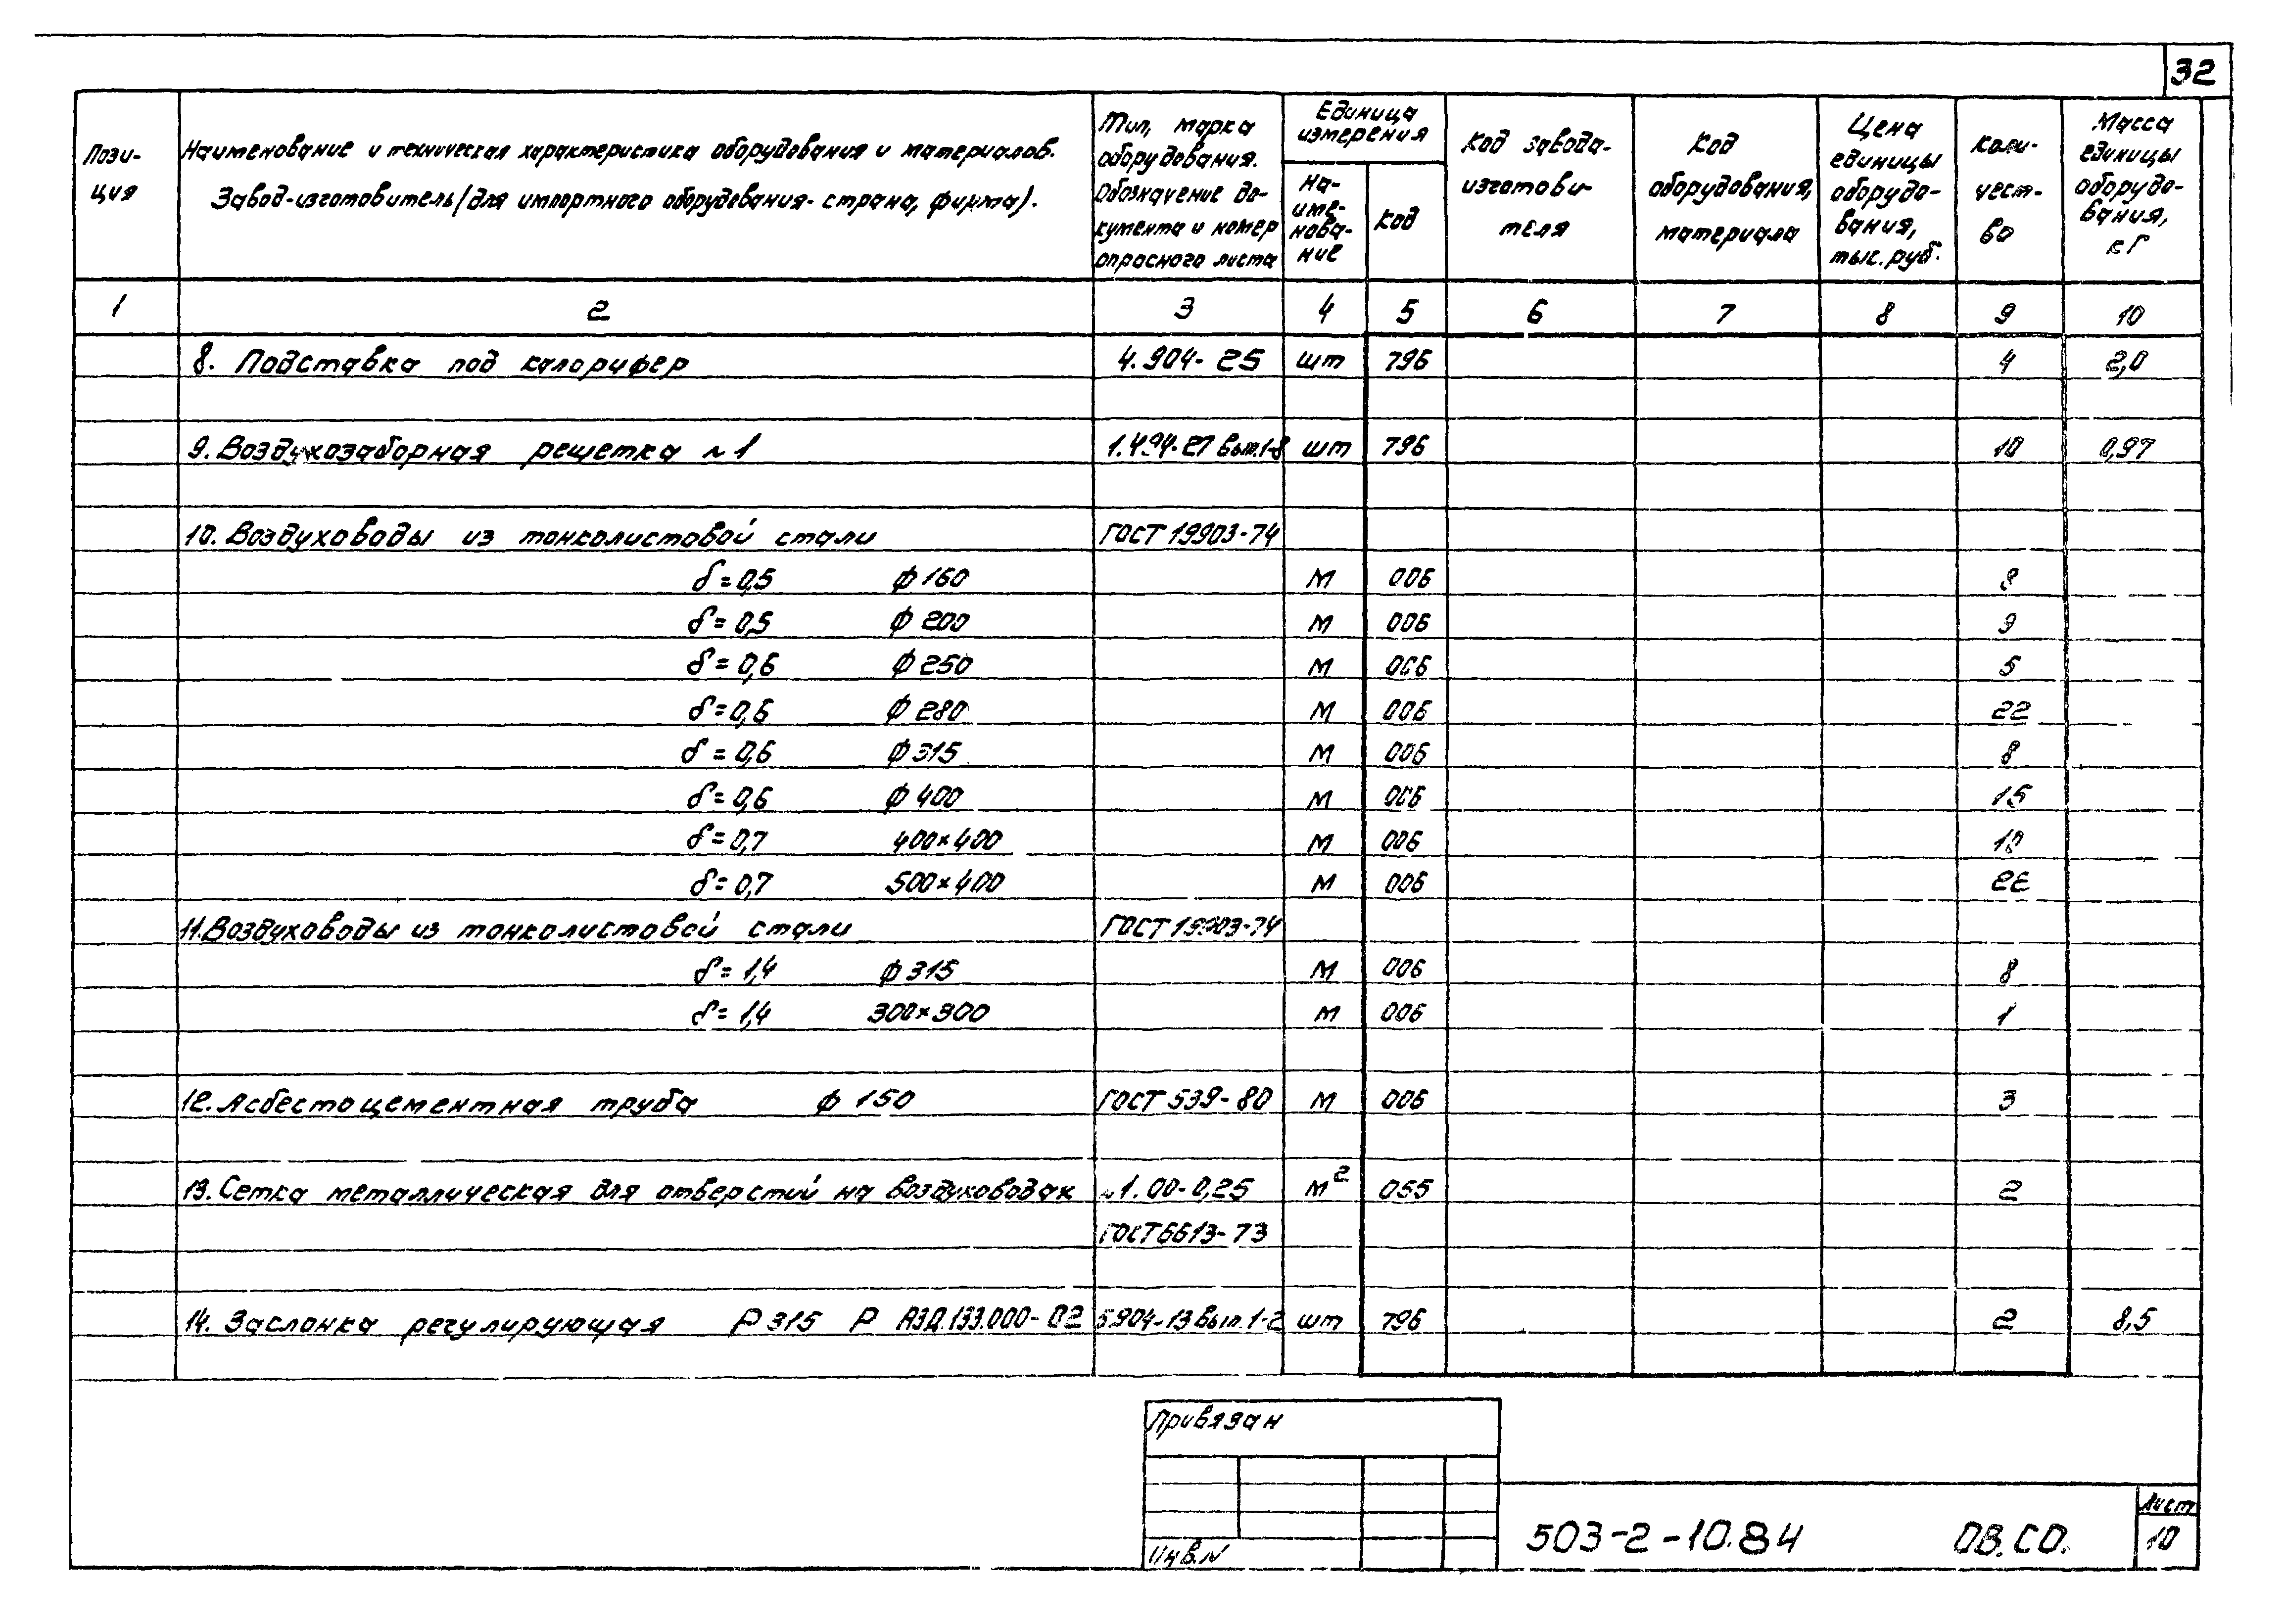 32
Пози-
ция
Наименование и техническая характеристика оборудования и материалов.
Завод-изготовитель/для импортного оборудования-страна, фирма).
Тип, марка
оборудования.
Обозначение до-
кумента и номер
опросного листа
Единица
измерения
На-
име-
нова-
ние
Код
Код завода-
изготови-
теля
Код
оборудования,
материала
Цена
единицы
оборудо-
вания,
тыс. руб.
Коли-
чест-
во
Масса
единицы
оборудо-
вания,
кг
1 2 3 4 5 6 7 8 9 10
8. Подставка под калорифер 4.904-25 шт 796 4 2,0
9. Воздухозаборная решетка №1 1.494-27 вып.1-8 шт 796 10 0,97
10. Воздуховоды из тонколистовой стали ГОСТ 19903-74
δ=0,5 ф160 м 006 8
δ=0,5 ф200 м 006 9
δ=0,6 ф250 м 006 5
δ=0,6 ф280 м 006 22
δ=0,6 ф315 м 006 8
δ=0,6 ф400 м 006 15
δ=0,7 400×400 м 006 10
δ=0,7 500×400 м 006
11. Воздуховоды из тонколистовой стали ГОСТ 19903-74
δ=1,4 ф315 м 006 8
δ=1,4 300×300 м 006 1
12. Асбестоцементная труба ф150 ГОСТ 539-80 м 006 3
13. Сетка металлическая для отверстий на воздуховодах №1.00-0,25 м² 055 2
ГОСТ 6613-73
14. Заслонка регулирующая Р315 Р АЗД.133.000-02 5.904-13 вып.1-2 шт 796 2 8,5
Привязан
Инв.N
503-2-10.84 ОВ.СО.
Лист
10